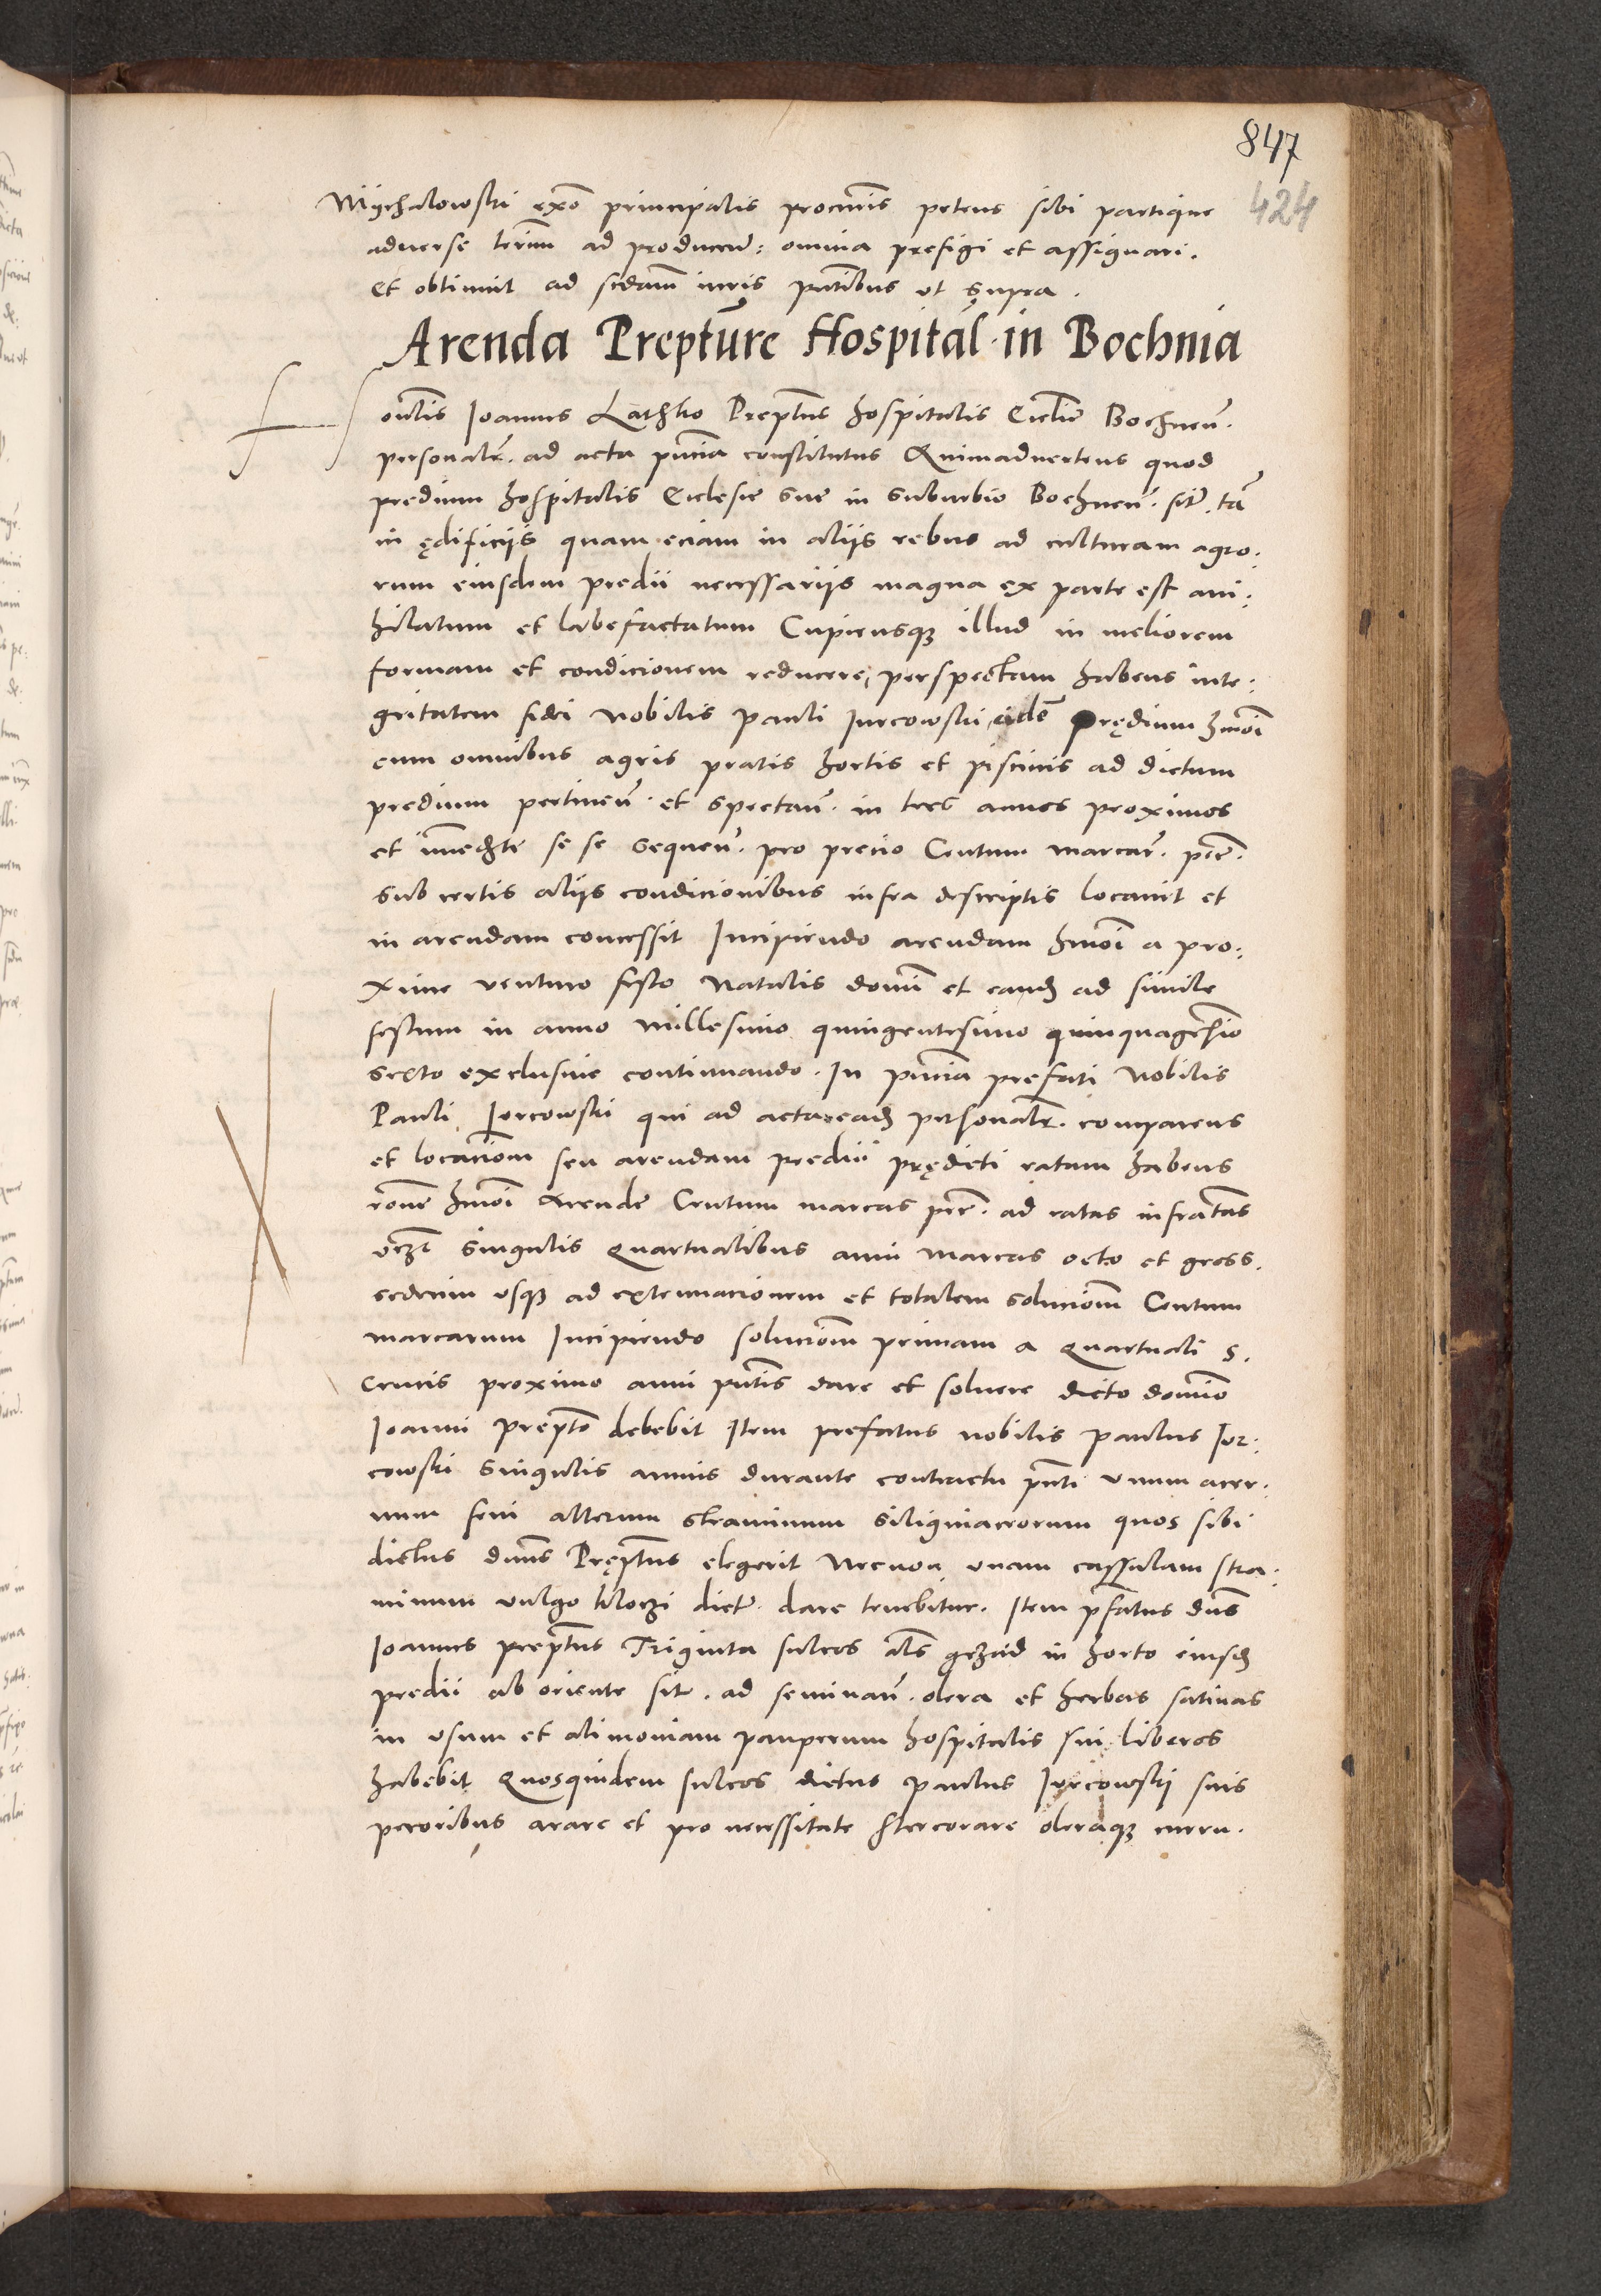 847
424
Mijchalowski exo principalis procuris petens sibi partique
adverse terīnū ad producen: omnia prefigi et assignari.
et obtinuit ad sedam iuris pntibus ut supra.
Arenda Prepture Hospital in Bochnia
Honlis Ioannes Lathko Preptus hospitalis Ecclie Bochnen.
personalr. ad acta pncia constitutus Animadvertens quod
predium hospitalis Ecclesie sue in suburbio Bochnen. sitū. tā
in ędificijs quam eciam in alijs rebus ad culturam agro:
rum eiusdem predii necessarijs magna ex parte est ani:
hilatum et labefactatum Cupiensqꝫ illud in meliorem
formam et condicionem reducere, perspectam habens inte:
gritatem fidei Nobilis Pauli Iurcowski, idē prędium hmoī
cum omnibus agris pratis hortis et piscinis ad dictum
predium pertinen. et spectan. in tres annos proximos
et īmedate se se sequen. pro precio Centum marcar. pece.
sub certis alijs condicionibus infra descriptis locavit et
in arendam concessit Incipiendo arendam hmoī a pro:
xime venturo festo Natalis domī et eandꝫ ad simile
festum in anno Millesimo quingentesimo quinquagesīo
sexto exclusive continuando. In pncia prefati Nobilis
Pauli Iorcowski qui ad acta eadꝫ personalr. comparens
et locationē seu arendam predii prędicti ratam habens
rōne hmoī Arende Centum marcas pece. ad ratas infratas
vcꝫt singulis Quartualibus anni Marcas octo et gross.
sedecim usqꝫ ad extenuacionem et totalem solucionē Centum
marcarum Incipiendo solucionē primam a Quartuali S.
Crucis proximo anni pntis dare et solvere dicto domīo
Ioanni prepto debebit Item prefatus nobilis Paulus Ior:
cowski singulis annis durante contractu pnti unum acer:
vum feni alterum straminum siliginaceorum quos sibi
dictus dnus Pręptus elegerit Necnon unam cassulam stra:
minum vulgo kloczi dict. dare tenebitur. Item pfatus dns
Ioannes preptus Triginta sulcos als grzad in horto eiusdꝫ
predii ab oriente sit. ad seminan. olera et herbas sativas
in usum et alimoniam pauperum hospitalis sui liberos
habebit Quosquidem sulcos dictus Paulus Iorcowskj suis
pecoribus arare et pro necessitate stercorare oleraqꝫ